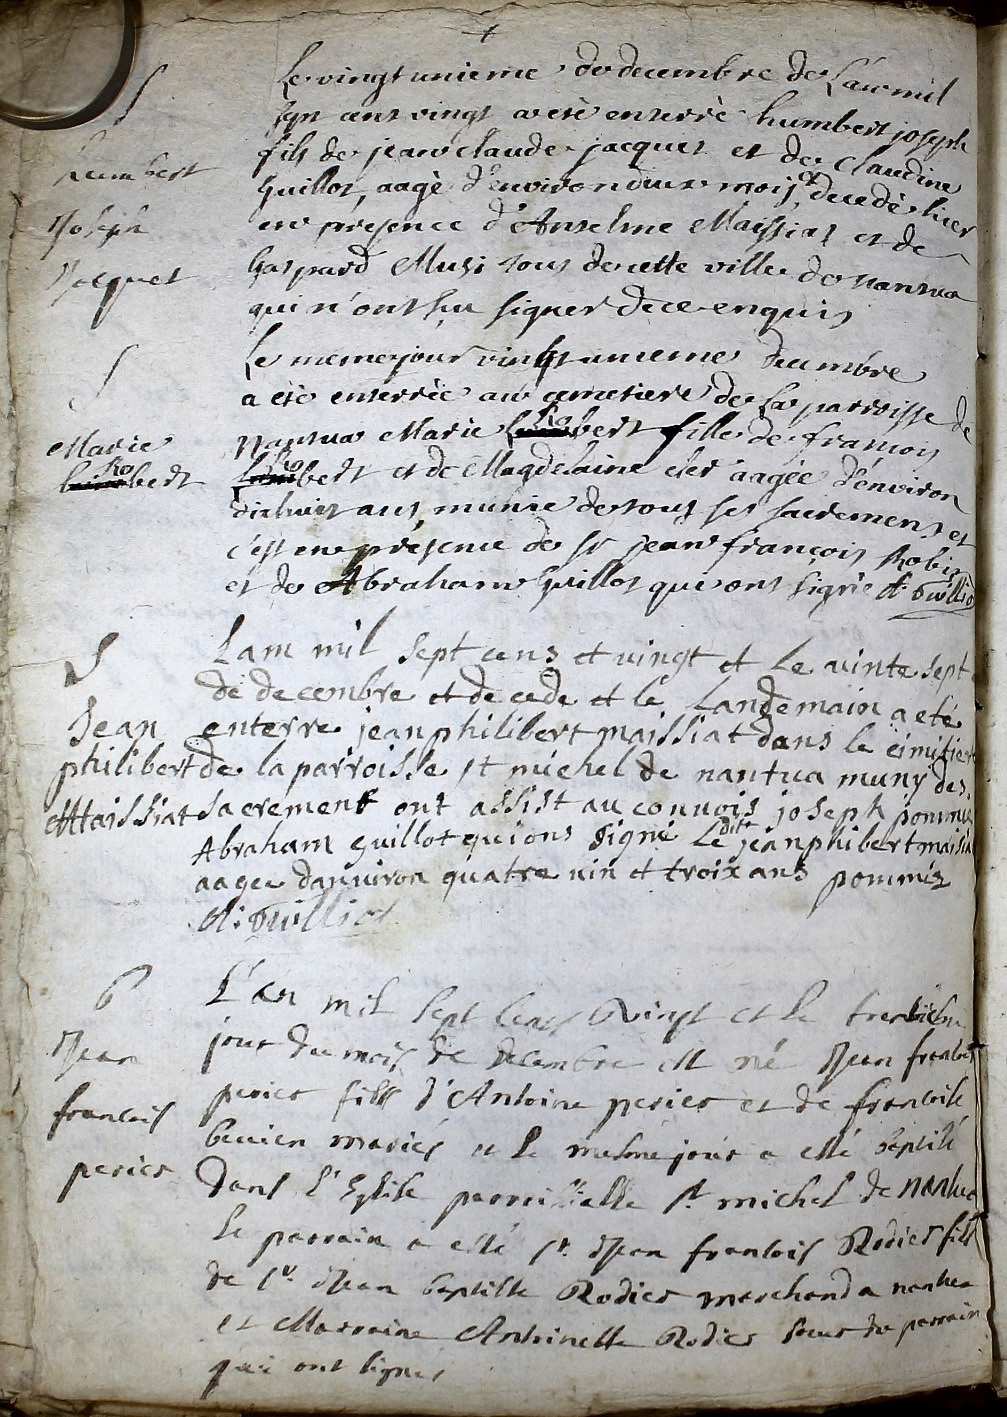 S
humbert
Joseph
Jacquet
Le vingt unieme de decembre de L'an mil
sept cent vingt a eté enterré humbert joseph
fils de jean claude jacquet et de claudine
Guillot, aagé d'environ deux mois, decedé hier
en presence d'Anselme Maissiat et de
Gaspard Musi tous de cette ville de nantua
qui n'ont sçu signer de ce enquis
S
Marie
Robert
Le meme jour vingt unieme decembre
a eté enterrée au cemetiere de La parroisse de
Nantua Marie Robert fille de francois
Robert et de Magdelaine aagée d'environ
dix huit ans, munie de tous ses sacremens, et
c'est en présence de sr jean françois Robin
et de Abraham Guillot qui ont signé
S
Jean
philibert
Maissiat
Lam mil sept cens et vingt et Le vinte sept
de decembre et decede et le Landemain a eté
enterre jean philibert maissiat dans le cimitiere
de la parroisse st michel de nantua muny des
sacrement ont assist au convois joseph pommie
Abraham guillot qui ons signé Le dit jean phibert maisia
aagee danviron quatre vin et troix ans pommiez
B
Jean
francois
perier
L'an mil sept cens vingt et le treisiesme
jour du mois de decembre est né Jean francois
perier fils d'Antoine perier et de francoise
mariés et le mesme jour a esté baptisé
dans l'Eglise parroissialle st. michel de nantua
le parrain a esté sr. Jean francois Rodier fils
de sr. Jean baptiste Rodier marchand a nantua
et Marraine Antoinette Rodier soeur du parrain
qui ont signes